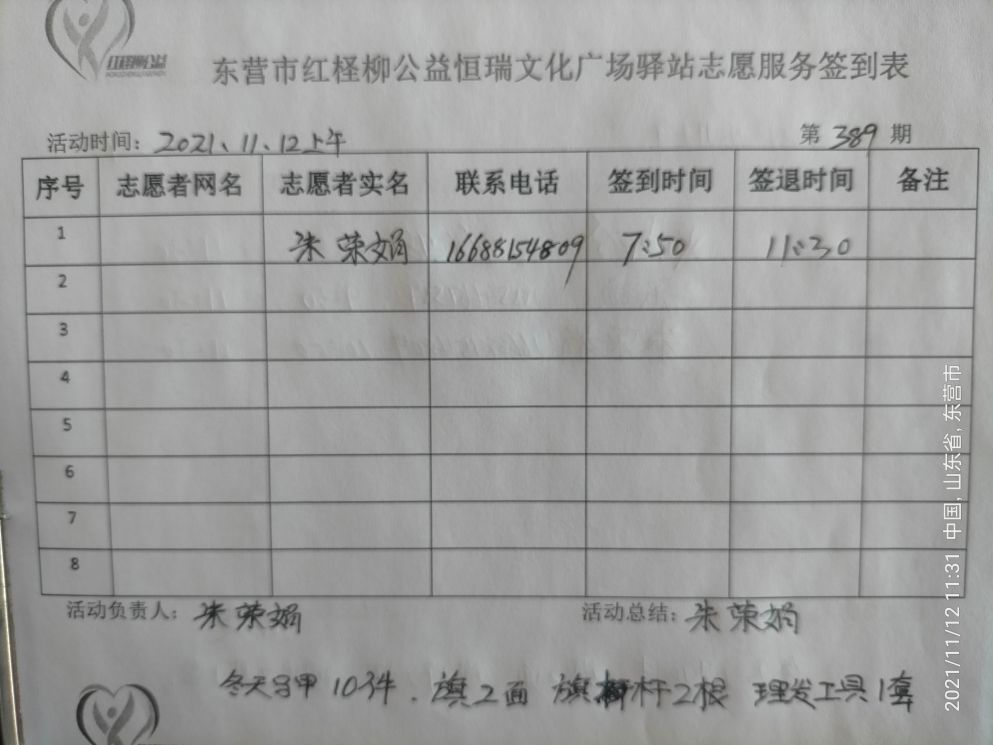 红柽柳公益
东营市红柽柳公益恒瑞文化广场驿站志愿服务签到表
活动时间：2021、11、12上午 第 389 期
序号 志愿者网名 志愿者实名 联系电话 签到时间 签退时间 备注
1 朱荣娟 16688154809 7:50 11:30
2
3
4
5
6
7
8
活动负责人：朱荣娟 活动总结：朱荣娟
冬天马甲10件．旗2面 旗杆2根 理发工具1套
2021/11/12 11:31 中国, 山东省, 东营市